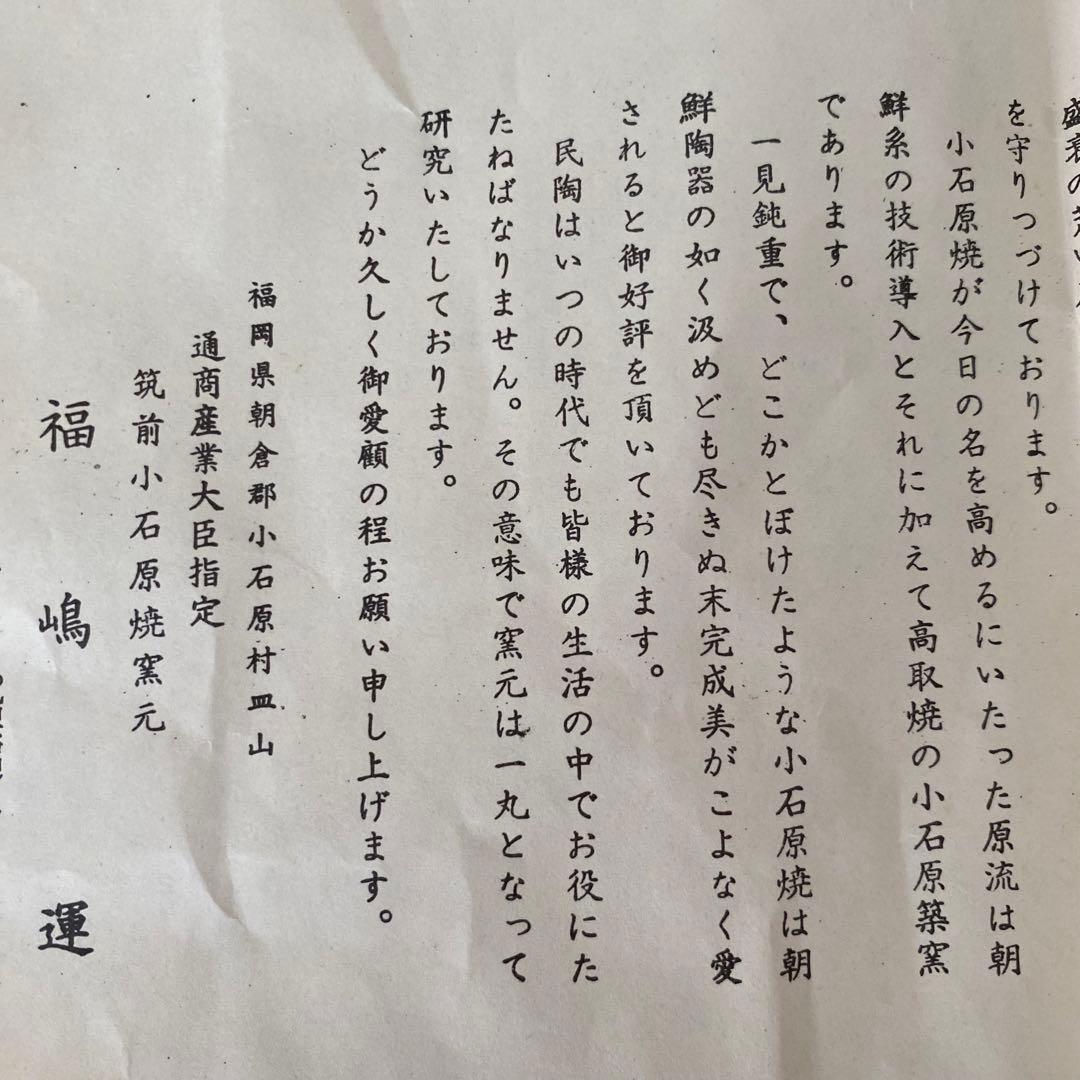 盛衰の
を守りつづけております。
小石原焼が今日の名を高めるにいたった原流は朝
鮮系の技術導入とそれに加えて高取焼の小石原築窯
であります。
一見鈍重で、どこかとぼけたような小石原焼は朝
鮮陶器の如く汲めども尽きぬ末完成美がこよなく愛
されると御好評を頂いております。
民陶はいつの時代でも皆様の生活の中でお役にた
たねばなりません。その意味で窯元は一丸となって
研究いたしております。
どうか久しく御愛顧の程お願い申し上げます。
福岡県朝倉郡小石原村皿山
通商産業大臣指定
筑前小石原焼窯元
福嶋運